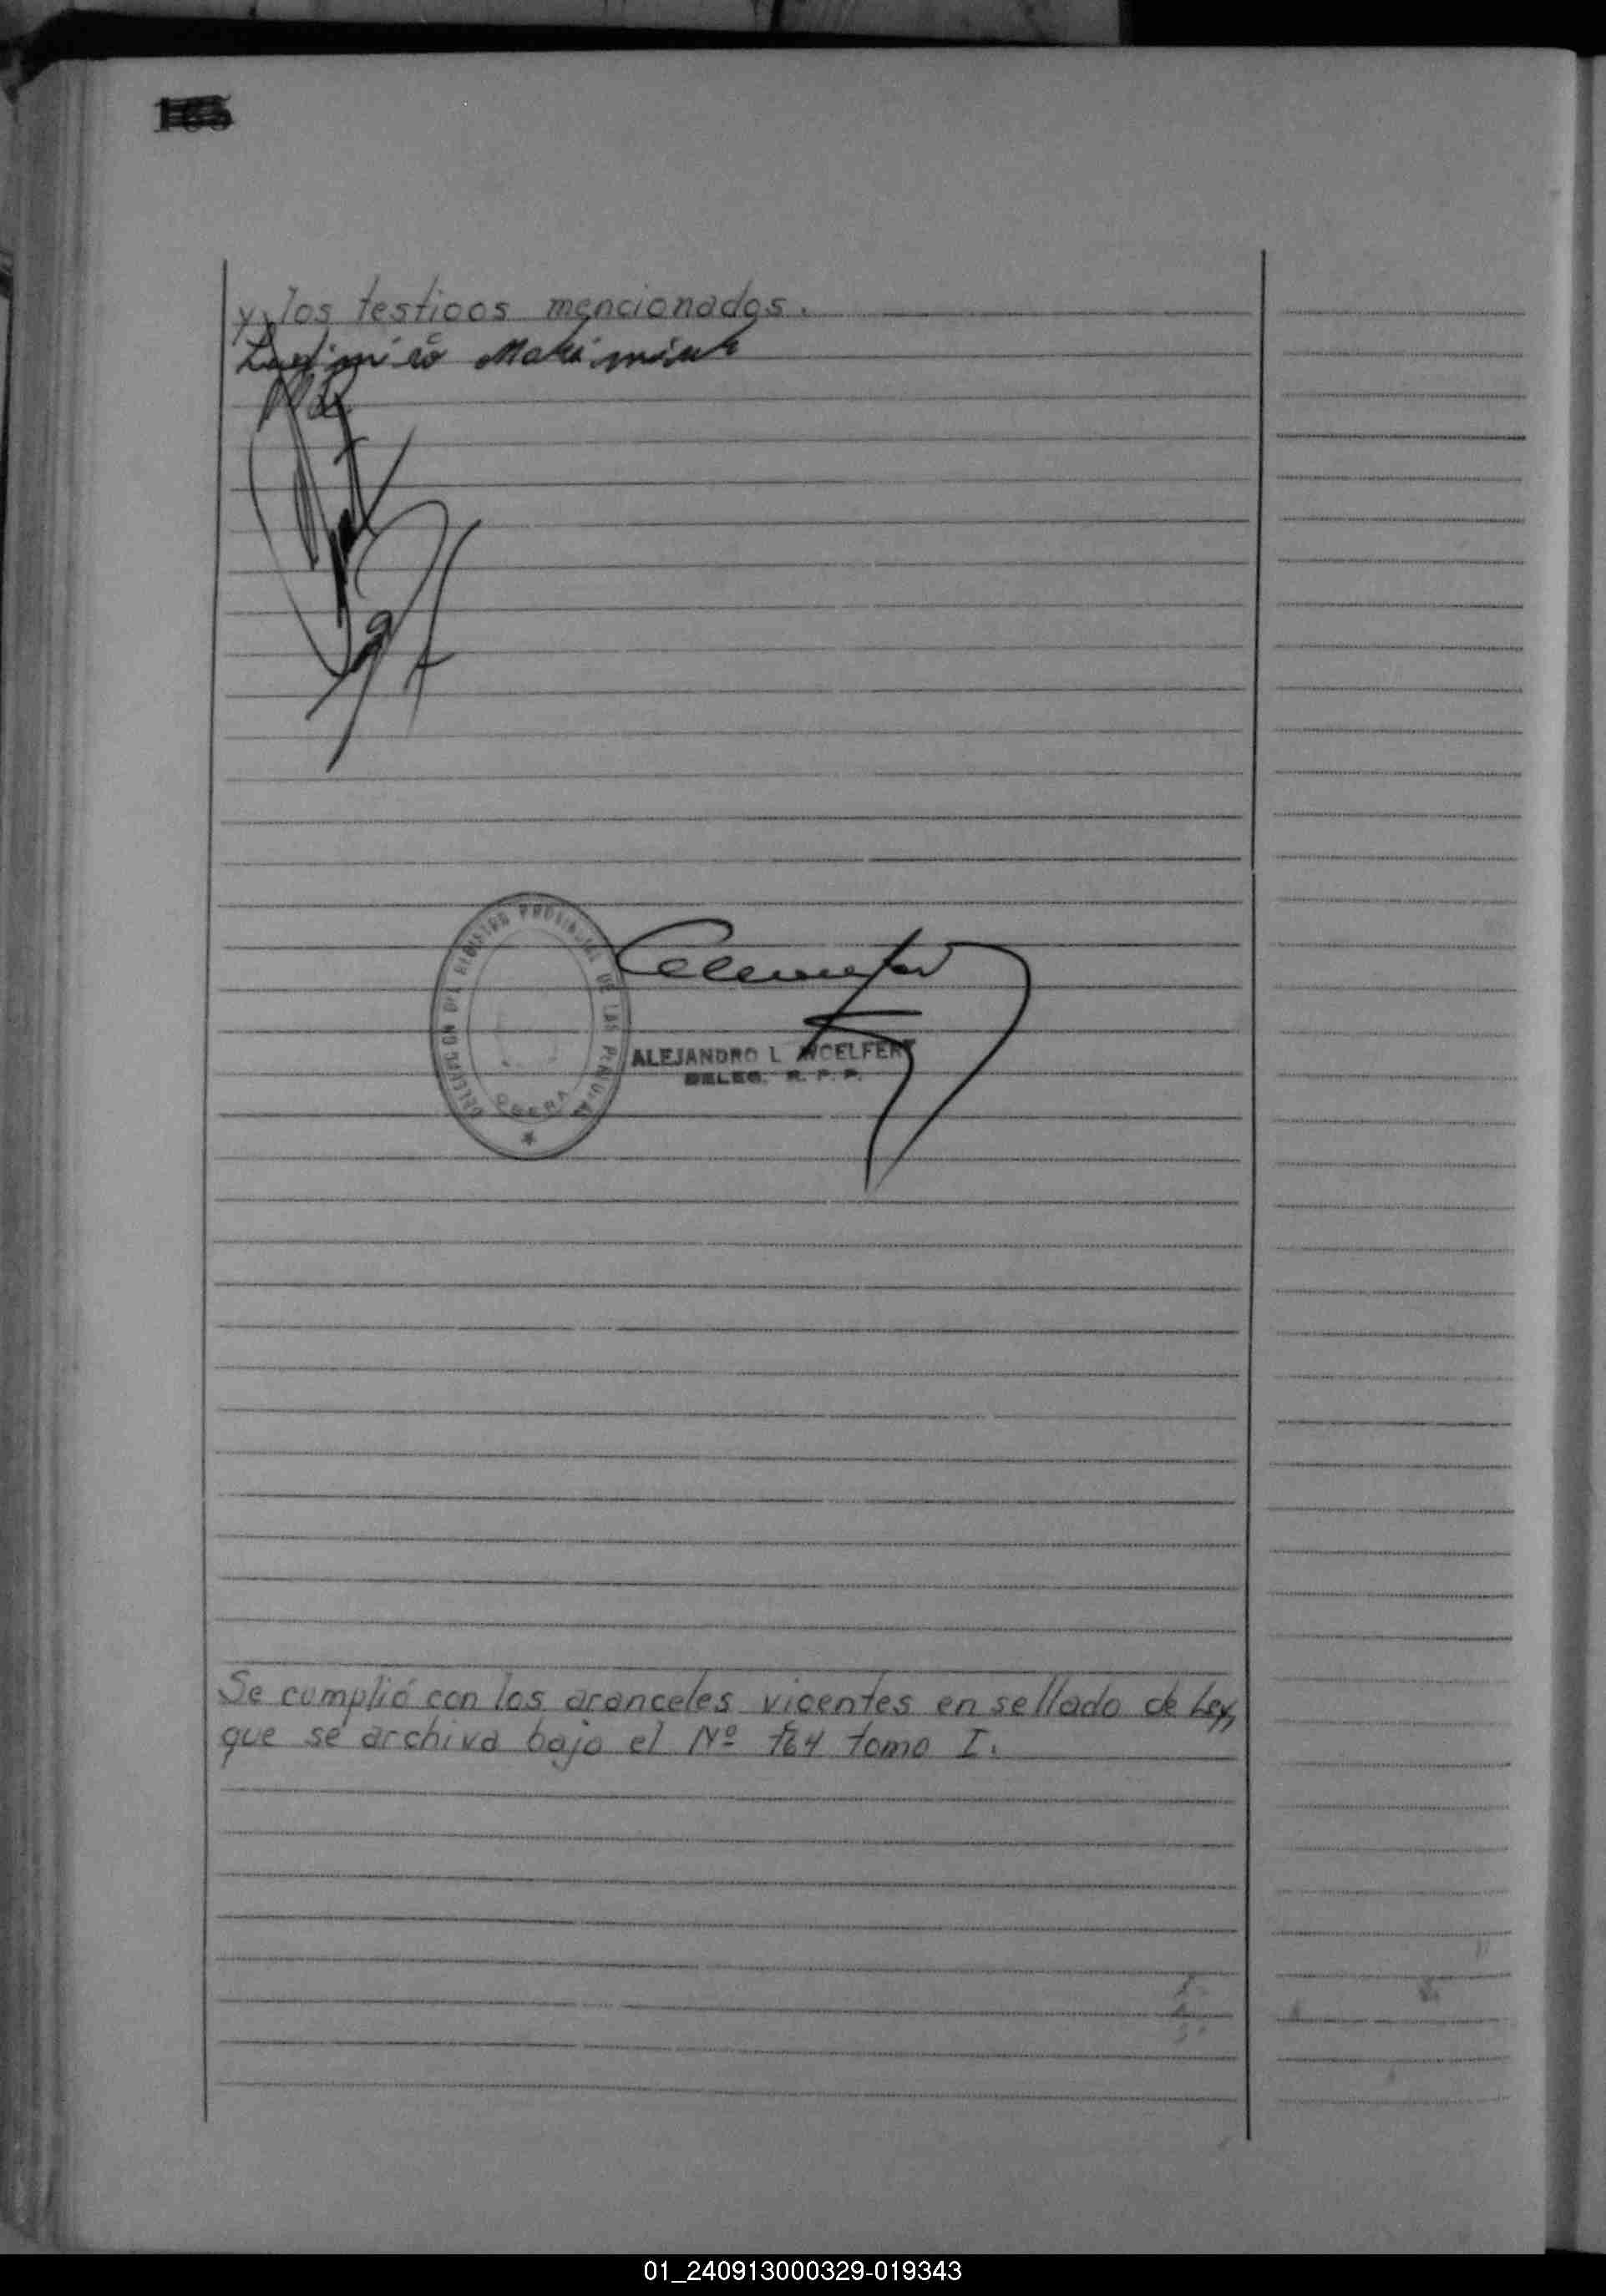 y los testigos mencionados.
Ladimiro
DELEGACION DEL REGISTRO PROVINCIAL DE LAS PERSONAS
OBERA
ALEJANDRO L. WOELFERT
DELEG. R. P. P.
Se cumplió con los aranceles vigentes en sellado de Ley,
que se archiva bajo el Nº 764 tomo I.
01_240913000329-019343